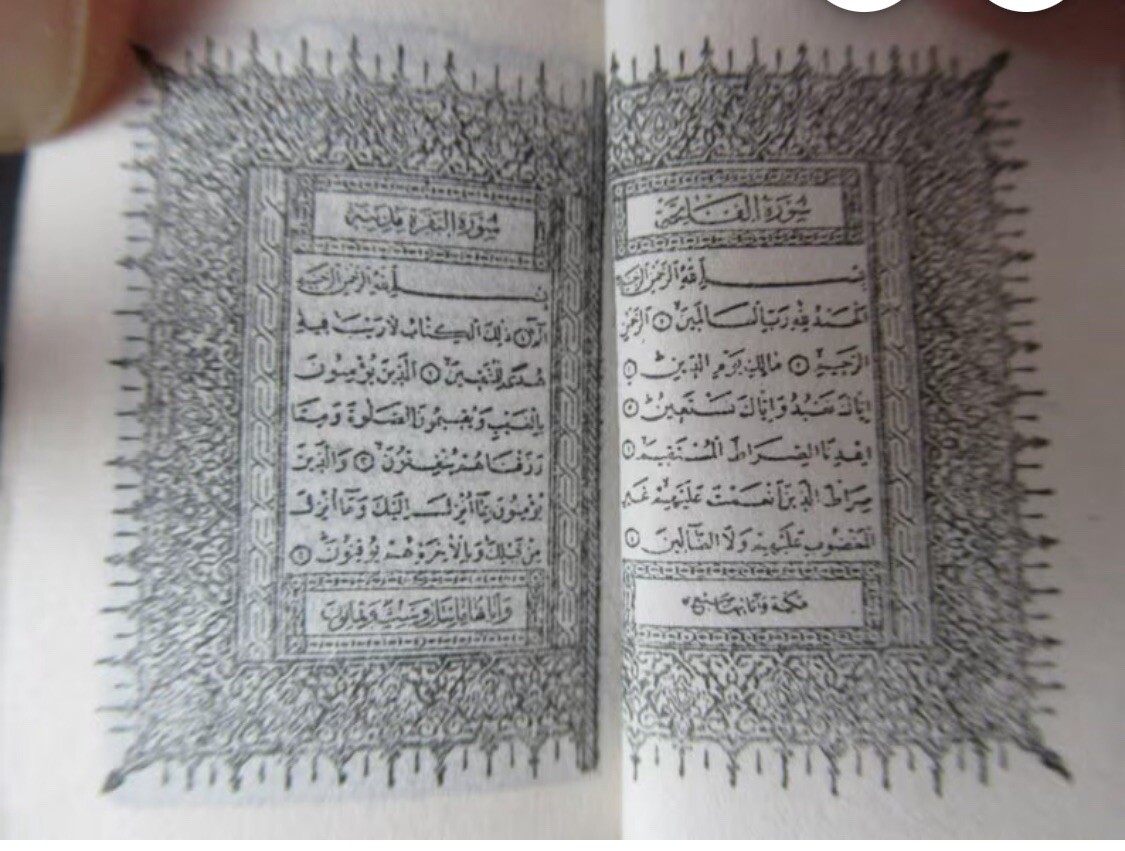 سُورَةُ الْفَاتِحَةِ
بِسْمِ اللهِ الرَّحْمٰنِ الرَّحِيمِ
اَلْحَمْدُ لِلّٰهِ رَبِّ الْعَالَمِينَ ۙ ﴿٢﴾ اَلرَّحْمٰنِ
الرَّحِيمِ ۙ ﴿٣﴾ مَالِكِ يَوْمِ الدِّينِ ۜ ﴿٤﴾
اِيَّاكَ نَعْبُدُ وَاِيَّاكَ نَسْتَعِينُ ۜ ﴿٥﴾
اِهْدِنَا الصِّرَاطَ الْمُسْتَقِيمَ ۙ ﴿٦﴾
صِرَاطَ الَّذِينَ اَنْعَمْتَ عَلَيْهِمْ غَيْرِ
الْمَغْضُوبِ عَلَيْهِمْ وَلَا الضَّٓالِّينَ ﴿٧﴾
مكية وآياتها سبع
سُورَةُ الْبَقَرَةِ مَدَنِيَّةٌ
بِسْمِ اللهِ الرَّحْمٰنِ الرَّحِيمِ
الٓمٓ ۚ ﴿١﴾ ذٰلِكَ الْكِتَابُ لَا رَيْبَ ۚ فِيهِ
هُدًى لِلْمُتَّقِينَ ۙ ﴿٢﴾ اَلَّذِينَ يُؤْمِنُونَ
بِالْغَيْبِ وَيُقِيمُونَ الصَّلٰوةَ وَمِمَّا
رَزَقْنَاهُمْ يُنْفِقُونَ ۙ ﴿٣﴾ وَالَّذِينَ
يُؤْمِنُونَ بِمَٓا اُنْزِلَ اِلَيْكَ وَمَٓا اُنْزِلَ
مِنْ قَبْلِكَ ۚ وَبِالْاٰخِرَةِ هُمْ يُوقِنُونَ ۜ ﴿٤﴾
وآياتها مائتان وست وثمانون